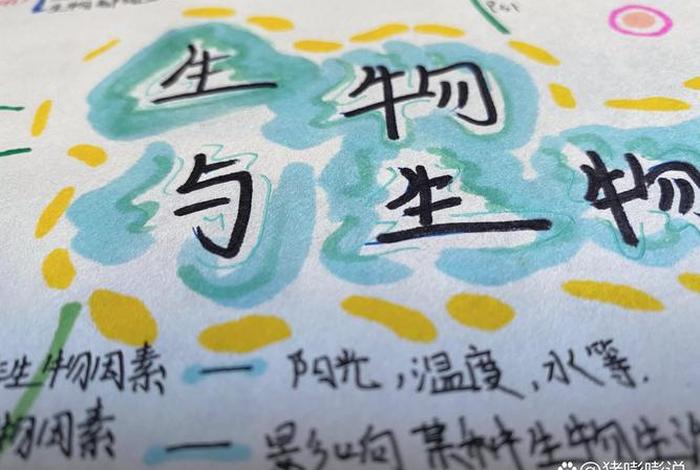 生物
与生物
生物因素 — 阳光,温度,水等.
物因素 — 影响某种生物生活
猪嘭嘭说